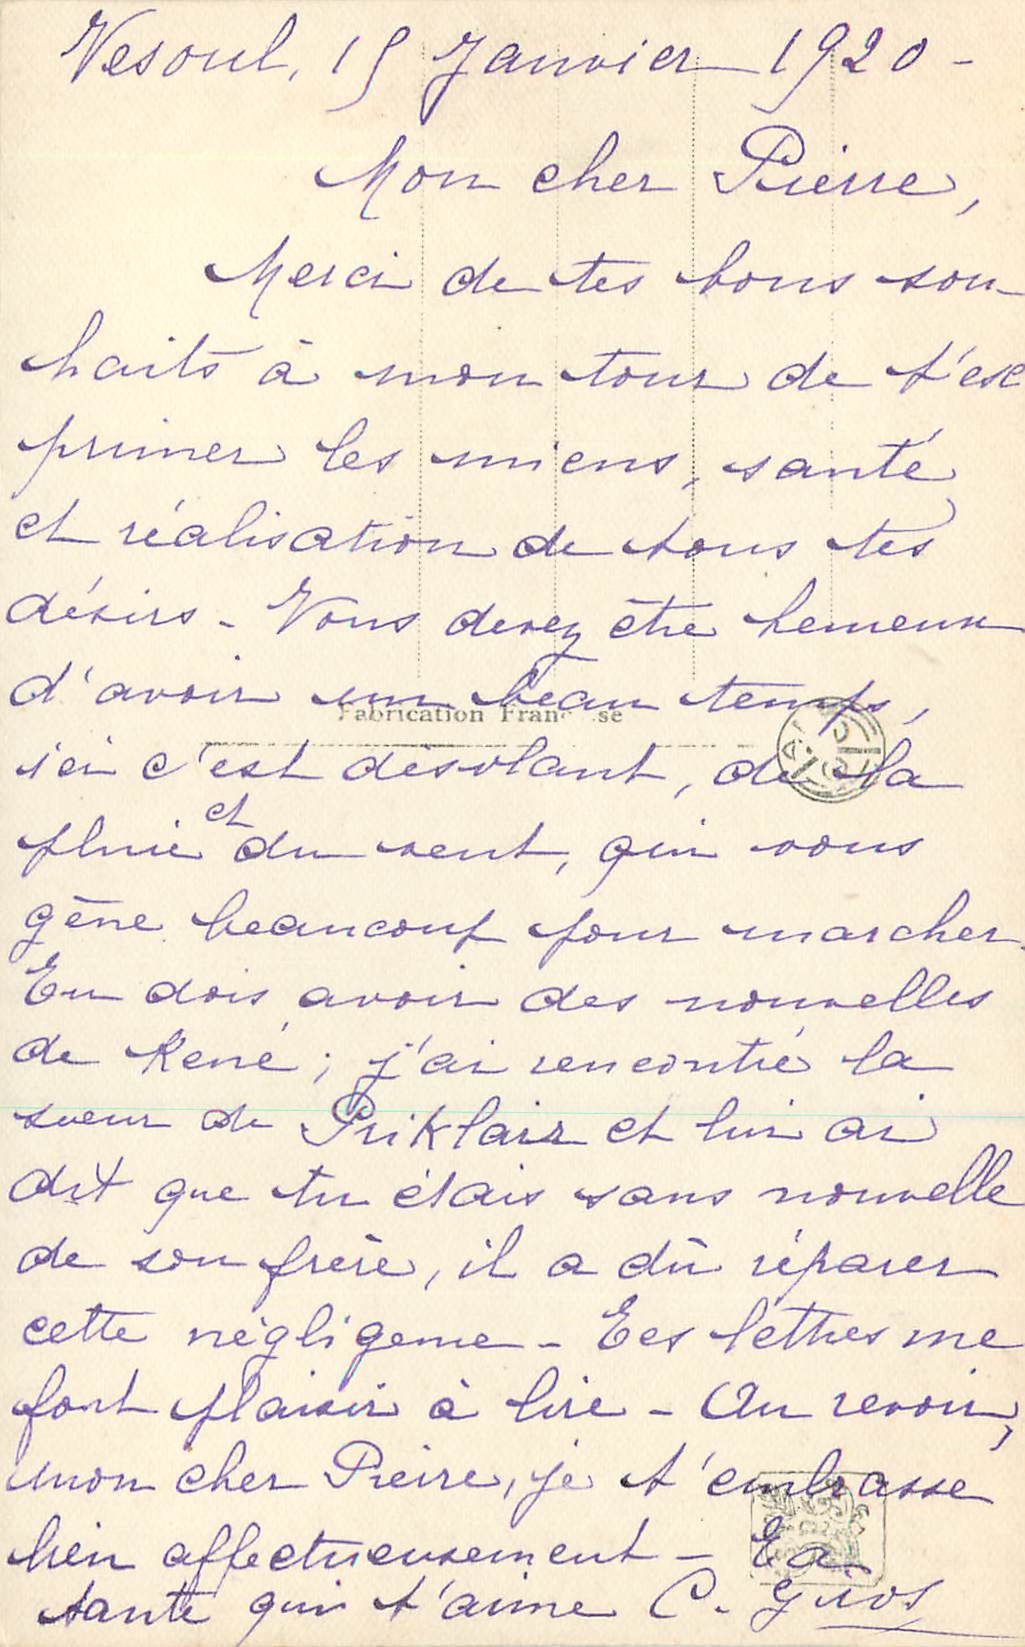 Vesoul, 15 Janvier 1920 -
Mon cher Pierre,
Merci de tes bons sou
haits à mon tour de t'ex
primer les miens, santé
et réalisation de tous tes
désirs - Vous devez être heureux
d'avoir un beau temps,
Fabrication Française
ici c'est désolant, de la
pluie et du vent, qui vous
gêne beaucoup pour marcher.
Tu dois avoir des nouvelles
de René ; j'ai rencontré la
sœur de et lui ai
dit que tu étais sans nouvelle
de son frère, il a dû réparer
cette négligence - Tes lettres me
font plaisir à lire - Au revoir,
mon cher Pierre, je t'embrasse
bien affectueusement - Ta
tante qui t'aime C.